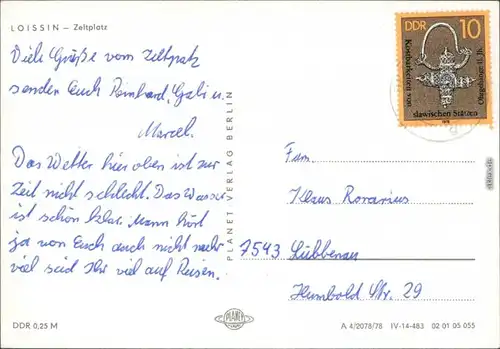 LOISSIN – Zeltplatz
Viele Grüße vom Zeltplatz
senden Euch Reinhard, Gabi u.
Marcel.
Das Wetter hier oben ist zur
Zeit nicht schlecht. Das Wasser
ist schön klar. Mann hört
ja von Euch auch nicht mehr
viel seid Ihr viel auf Reisen.
PLANET VERLAG BERLIN
DDR 10
Kostbarkeiten von
slawischen Stätten
Ohrgehänge 11. Jh.
1978
Fam.
Klaus Rorarius
7543 Lübbenau
Humbold Str. 29
DDR 0,25 M
PLANET
A 4/2078/78 IV-14-483 02 01 05 055